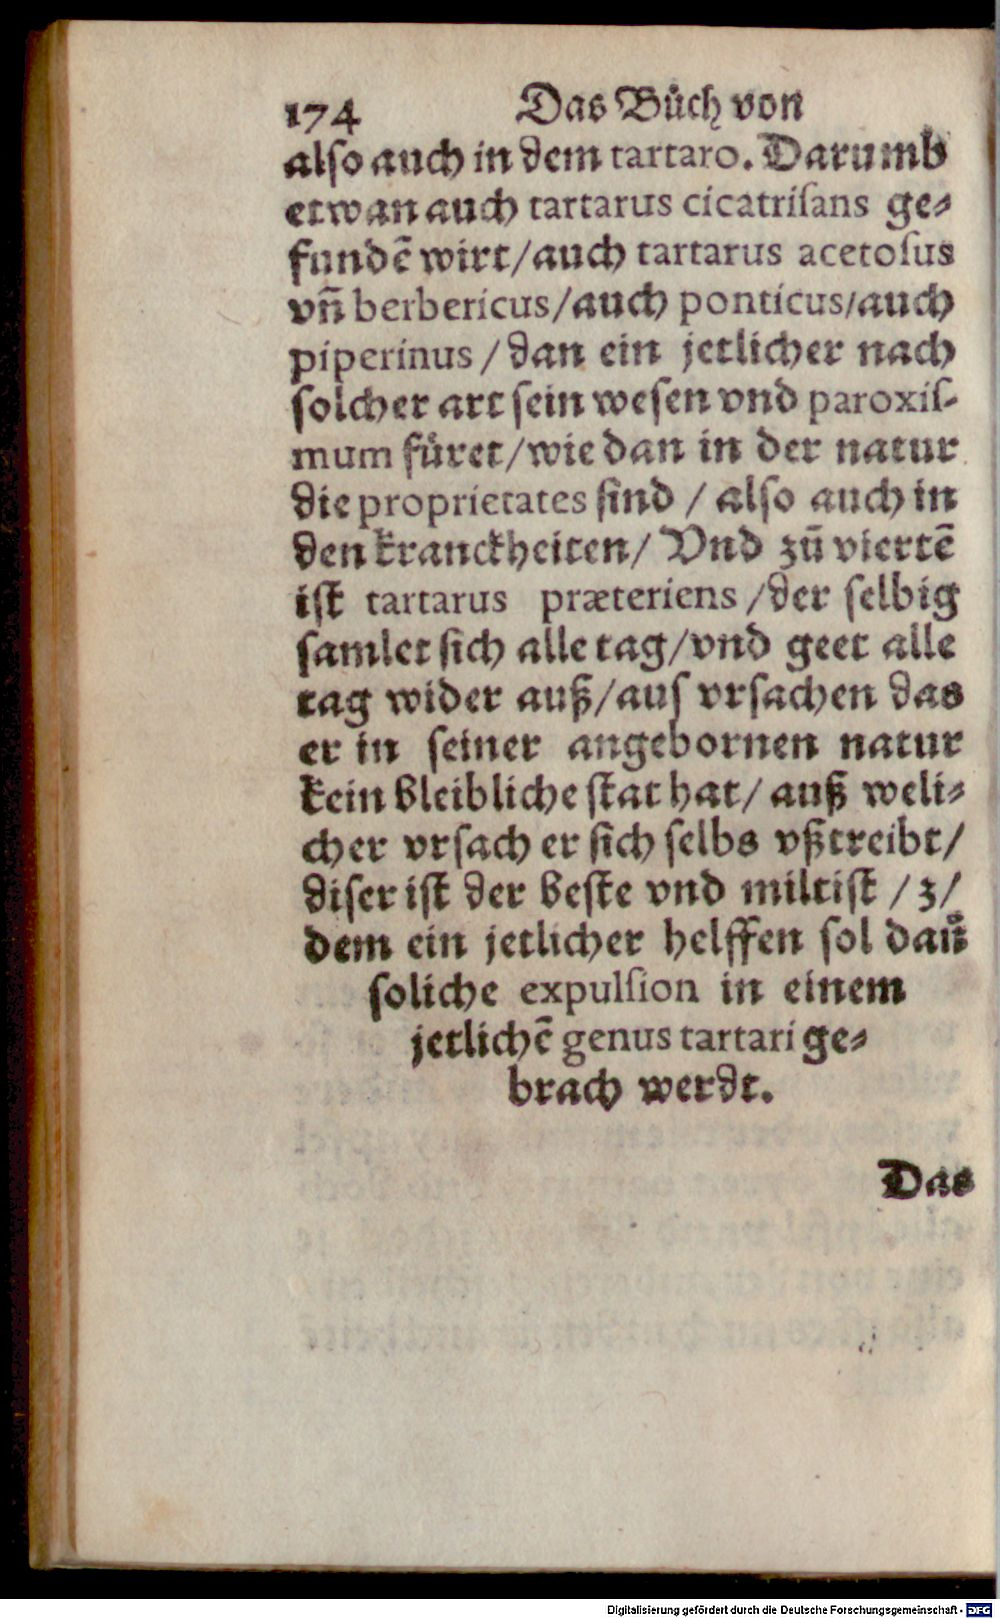 174 Das Bůch von
also auch in dem tartaro. Darumb
etwan auch tartarus cicatriſans ge⸗
fundē wirt/auch tartarus acetoſus
vn̄ berbericus/auch ponticus/auch
piperinus / dan ein jetlicher nach
solcher art sein wesen vnd paroxiſ-
mum fůret/wie dan in der natur
die proprietates sind / also auch in
den kranckheiten/ Vnd zū viertē
ist tartarus præteriens /der selbig
samlet sich alle tag/vnd geet alle
tag wider auß/auſ vrsachen das
er in seiner angebornen natur
kein bleibliche stat hat/ auß weli⸗
cher vrsach er sich selbs vßtreibt/
diser ist der beste vnd miltist /z/
dem ein jetlicher helffen sol dañ
soliche expulſion in einem
jetlichē genus tartari ge⸗
brach werdt.
Das
Digitalisierung gefördert durch die Deutsche Forschungsgemeinschaft - DFG